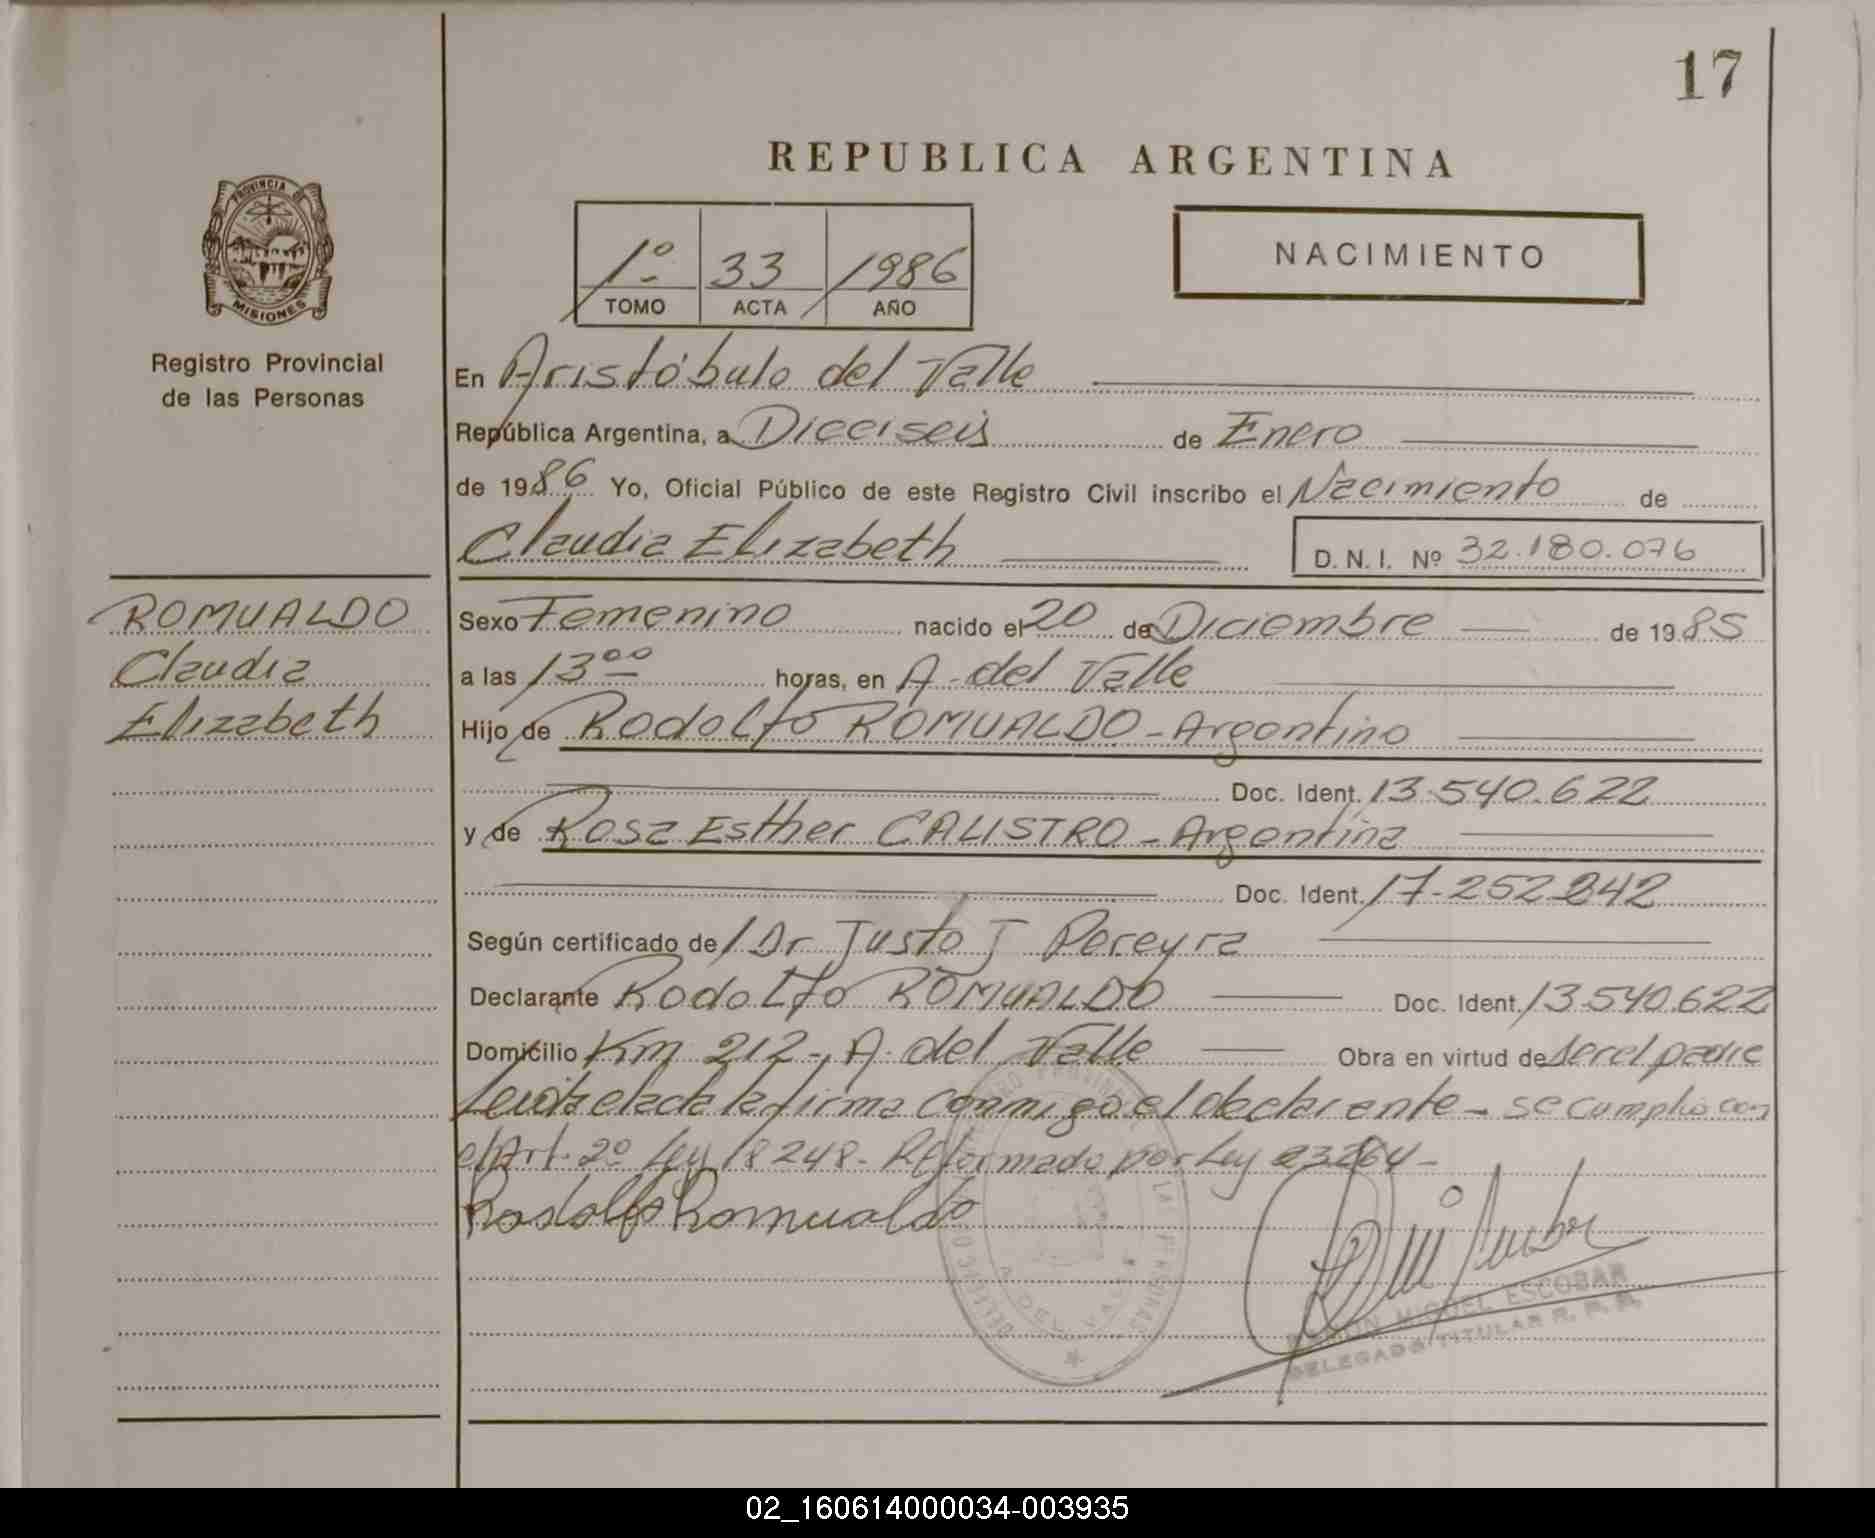 17
REPUBLICA ARGENTINA
PROVINCIA D
MISIONES
1º 33 1986
TOMO ACTA AÑO
NACIMIENTO
Registro Provincial
de las Personas
En Aristóbulo del Valle
República Argentina, a Dieciseis de Enero
de 1986 Yo, Oficial Público de este Registro Civil inscribo el Nacimiento de
Claudia Elizabeth D. N. I. Nº 32.180.076
ROMUALDO
Claudia
Elizabeth
Sexo Femenino nacido el 20 de Diciembre de 1985
a las 13⁰⁰ horas, en A. del Valle
Hijo de Rodolfo ROMUALDO - Argentino
Doc. Ident. 13.540.622
y de Rosa Esther CALISTRO - Argentina
Doc. Ident. 17.252.242
Según certificado de Dr Justo J Pereyra
Declarante Rodolfo ROMUALDO Doc. Ident. 13.540.622
Domicilio Km 212-, A. del Valle Obra en virtud de ser el padre
Leida el acta la firma conmigo el declarante - se cumplio con
el Art. 2º Ley 18248 - Reformado por Ley 23264 -
Rodolfo Romualdo
RAMON MIGUEL ESCOBAR
DELEGADO TITULAR R. P. P.
02_160614000034-003935